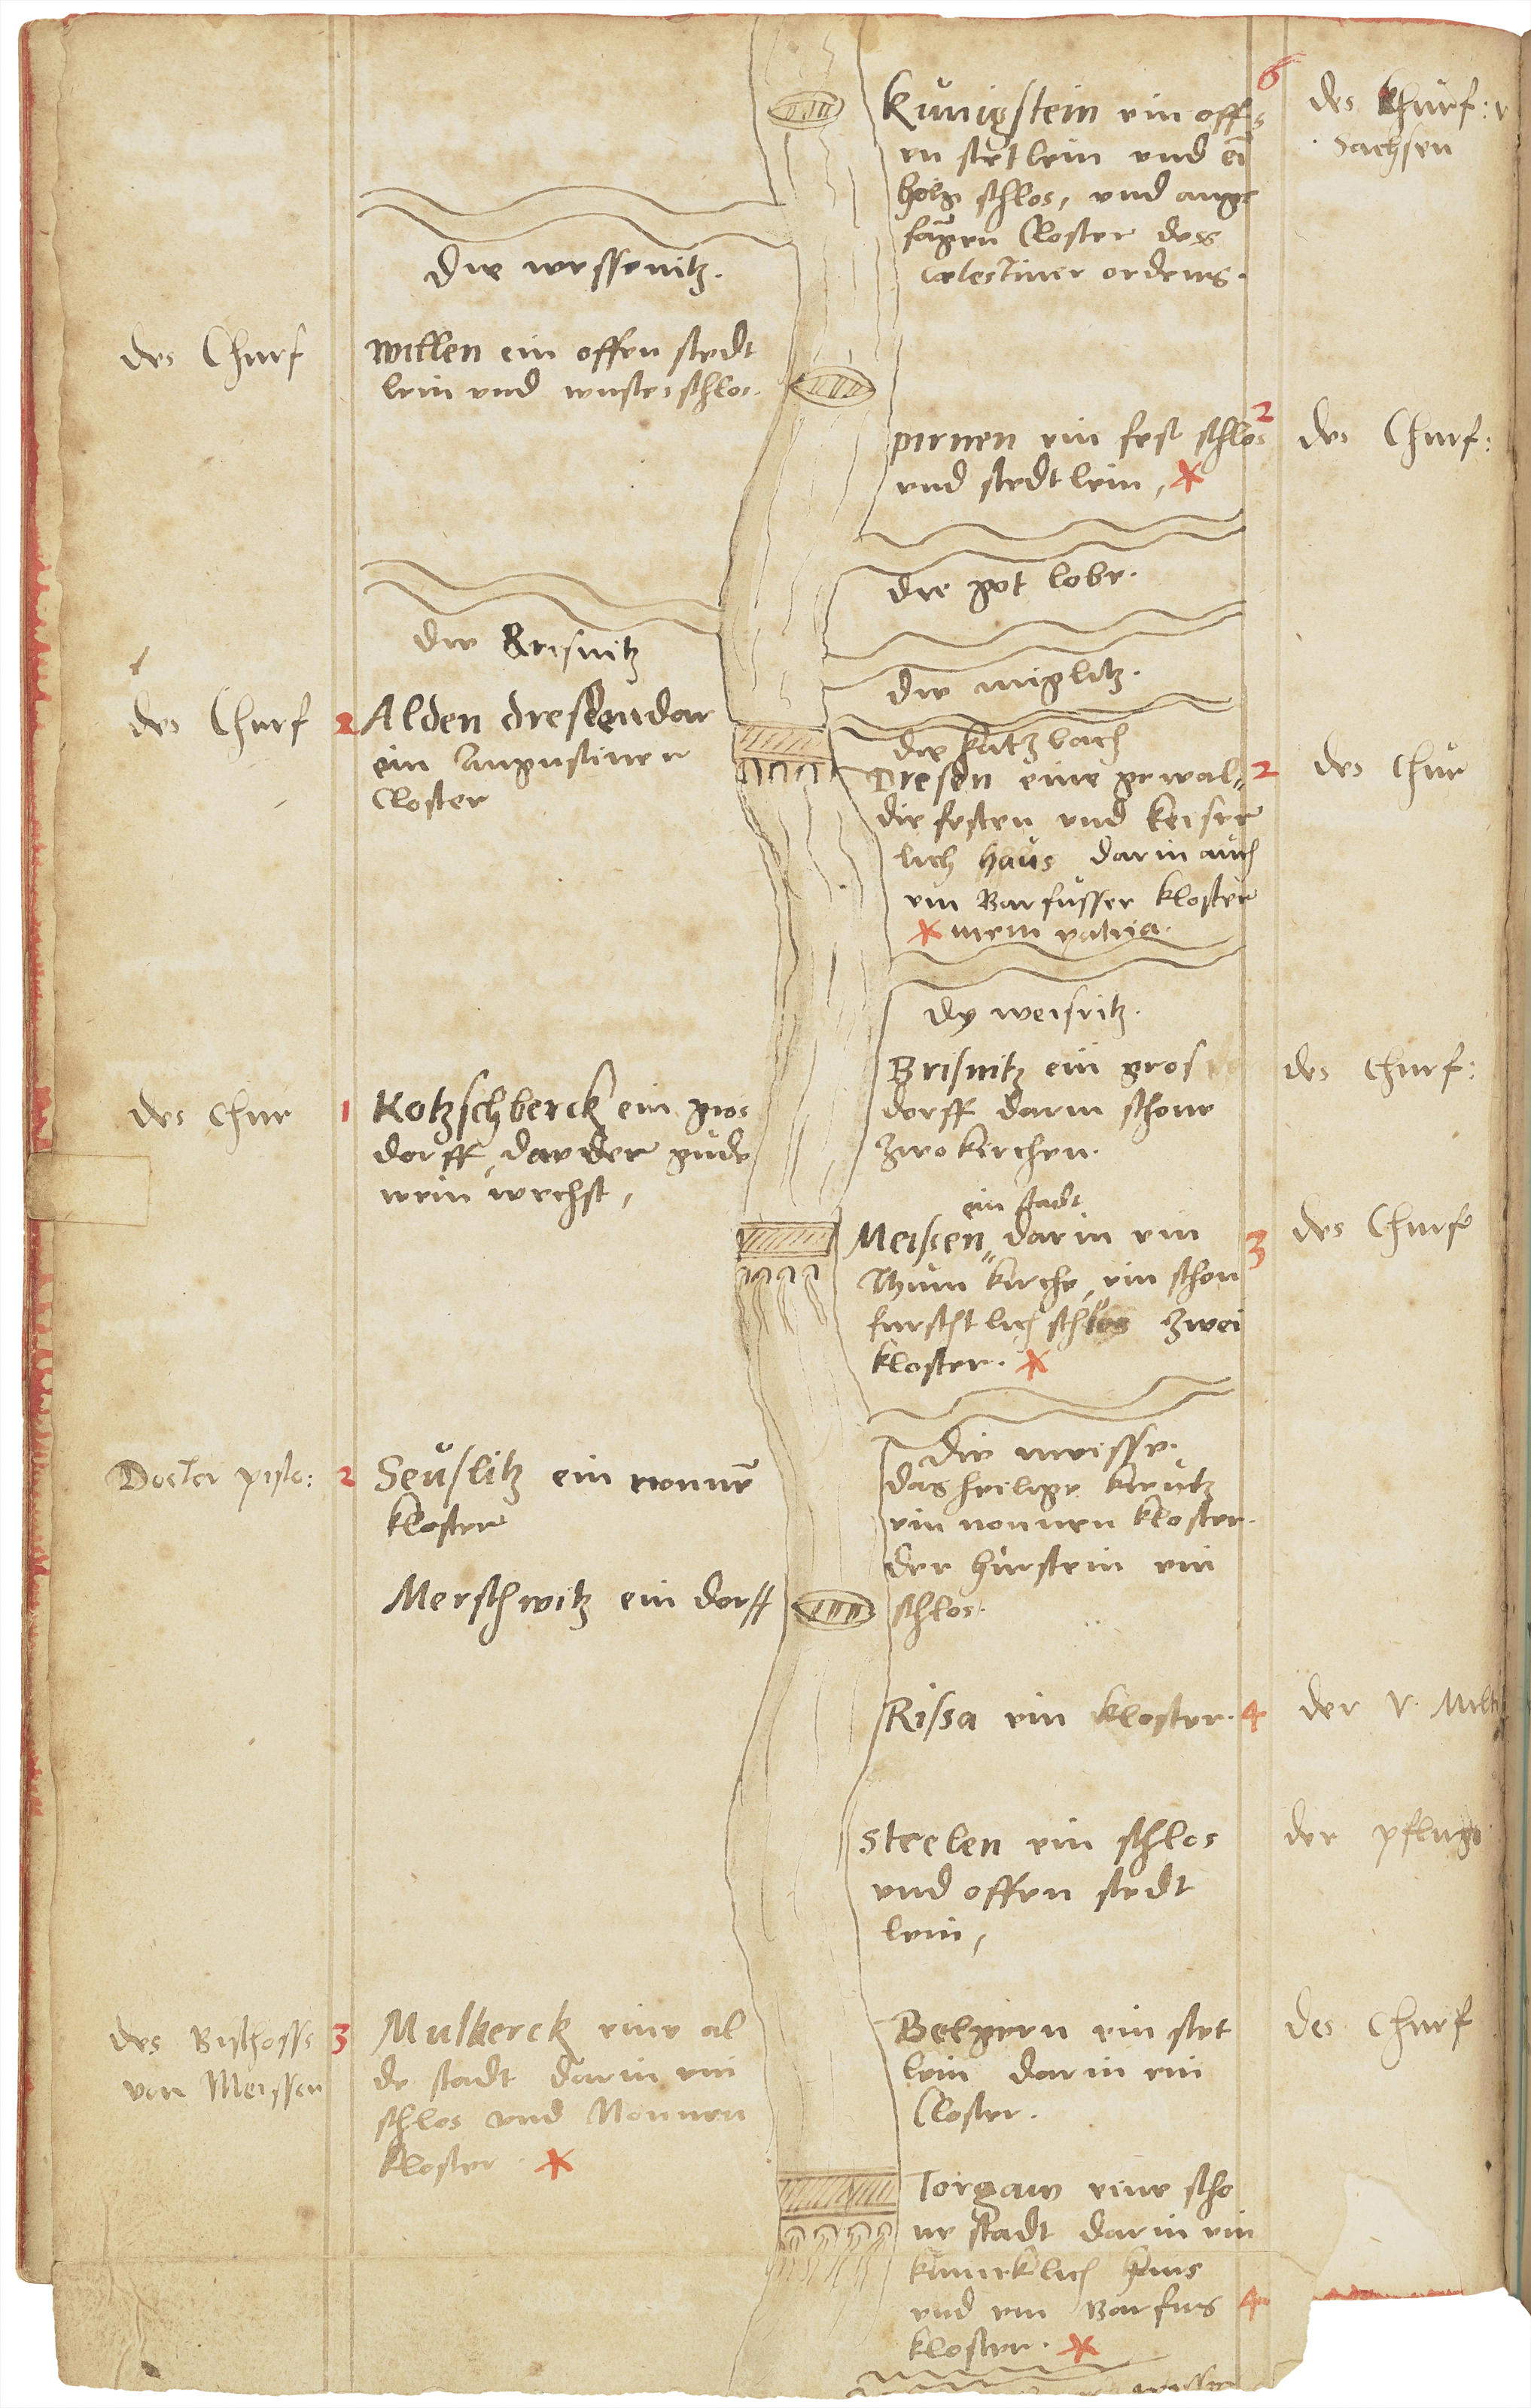 6
Kunigstein ein offs
en stetlein vnd ei
holtz schlos, vnd ange
fangen Closter dess
Celestiner ordens.
des Churf:
Sachsen
die wessenitz.
des Churf
Willen ein offen stedt
lein vnd wustes schlos.
pirnen ein fest schlos
2
vnd stedtlein,
des Churf:
die got lobe.
die Prisnitz
die miglitz.
die katzbach
des Churf
2
Alden dresen dar
ein Augustiner
Closter
Dresen eine gewal„
2
die festen vnd keiser
lich haus darin auch
ein Barfusser kloster
mein patria.
des Chur
dy weisritz.
Brisnitz ein gros
dorff darin schone
zwo kirchen.
des Churf:
des Chur
1
Kotzschberck ein gros
dorff, dar der gude
wein wechst,
ein stadt
Meissen„ darin ein
3
Thum kirche, ein schon
furschtlich schlos zwei
kloster.
des Churf
die meisse.
Docter pisto:
2
Seuslitz ein nonne
kloster
das heilige kreutz
ein nonnen kloster.
der hirstein ein
schlos.
Merschwitz ein dorff
Rissa ein kloster.
4
der v. Milt
Streelen ein schlos
vnd offen stedt
lein,
der pfluge
des Bischoffs
von Meissen
3
Mulberck eine al
de stadt darin ein
schlos vnd Nonnen
kloster.
Belgern ein stet
lein darin ein
Closter.
des Churf
Torgaw eine scho
ne stadt darin ein
kunicklich haus
vnd ein Barfus
4
kloster.